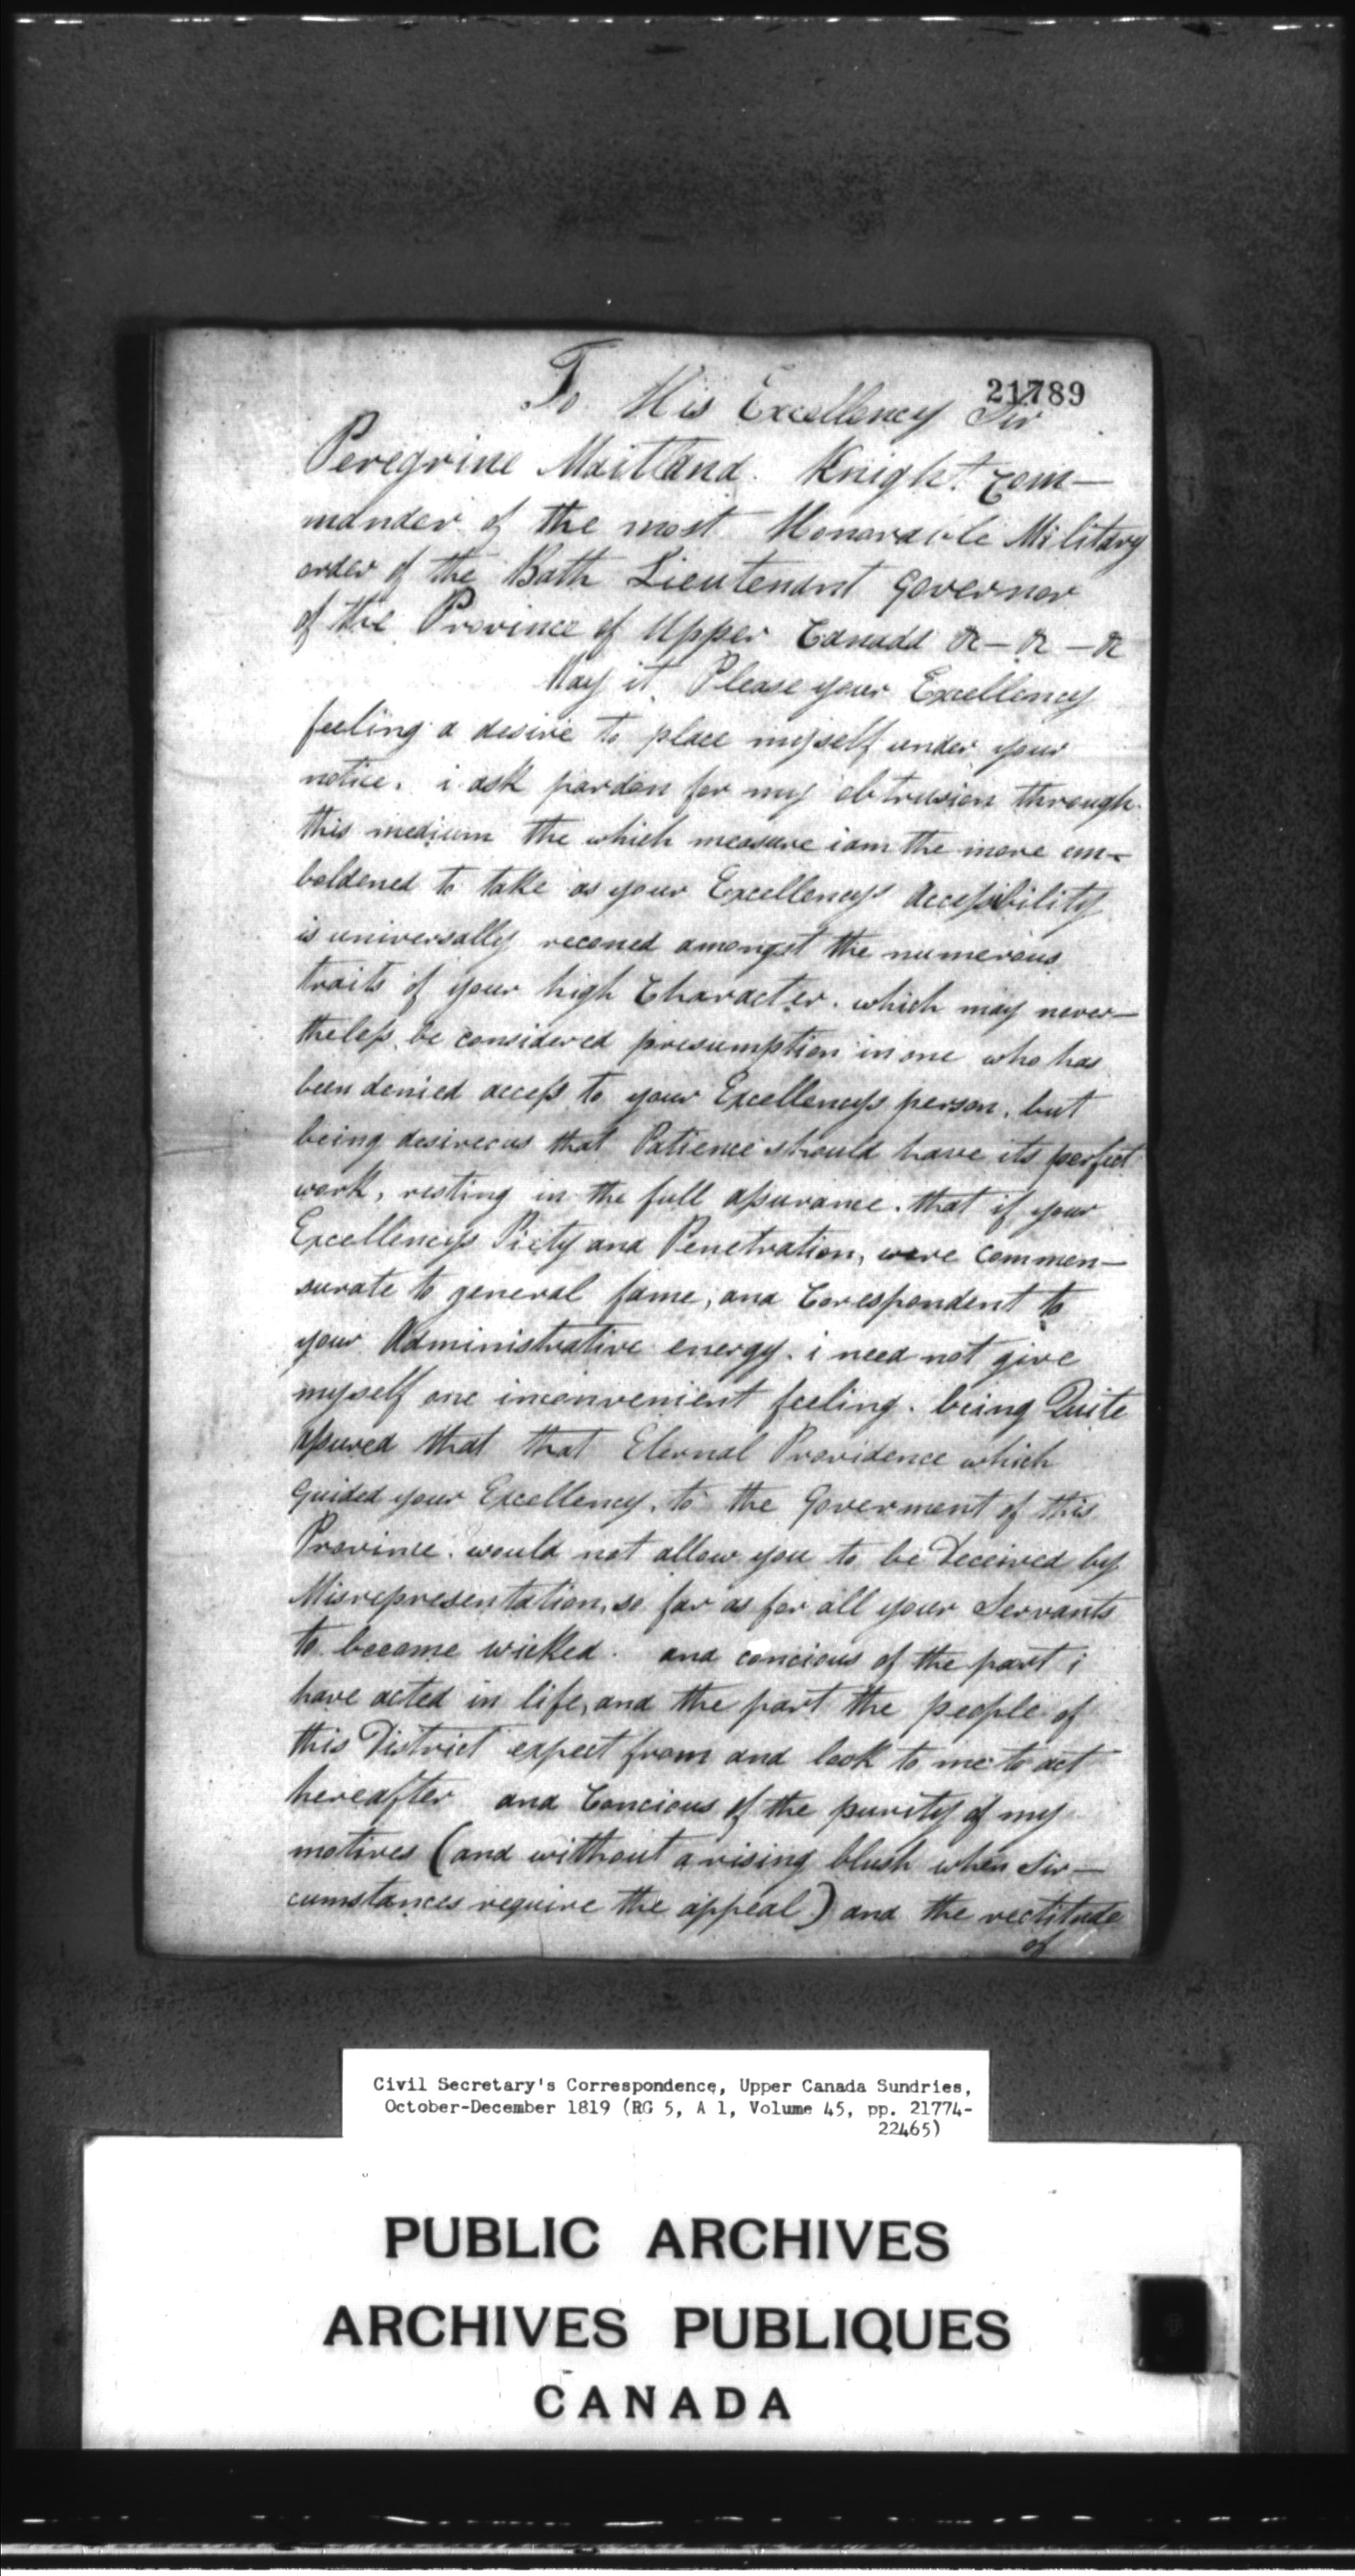 21789
To His Excellency Sir
Peregrine Maitland. Knight Com—
mander of the most Honorable Military
order of the Bath Lieutenant Governor
of the Province of Upper Canada &c — &c — &c
May it Please your Excellency
feeling a desire to place myself under your
notice. i ask pardon for my obtrusion through
this medium the which measure i am the more em-
boldened to take as your Excellencys Accessibility
is universally reconed amongst the numerous
traits of your high Character. which may never—
theless be considered presumption in one who has
been denied access to your Excellencys person, but
being desireous that Patience should have its perfect
work, resting in the full assurance. that if your
Excellencys Piety and Penetration, were commen—
surate to general fame, and Corespondent to
your Administrative energy. i need not give
myself one inconvenient feeling. being Quite
assured that that Eternal Providence which
guided your Excellency, to the Goverment of this
Province. would not allow you to be Deceived by
Misrepresentation, so far as for all your Servants
to become wicked. and concious of the part i
have acted in life, and the part the people of
this District expect from and look to me to act
hereafter and Concious of the purity of my
motives (and without a rising blush when Sir—
cumstances require the appeal) and the rectitude
of
Civil Secretary's Correspondence, Upper Canada Sundries,
October-December 1819 (RG 5, A 1, Volume 45, pp. 21774-
22465)
PUBLIC ARCHIVES
ARCHIVES PUBLIQUES
CANADA